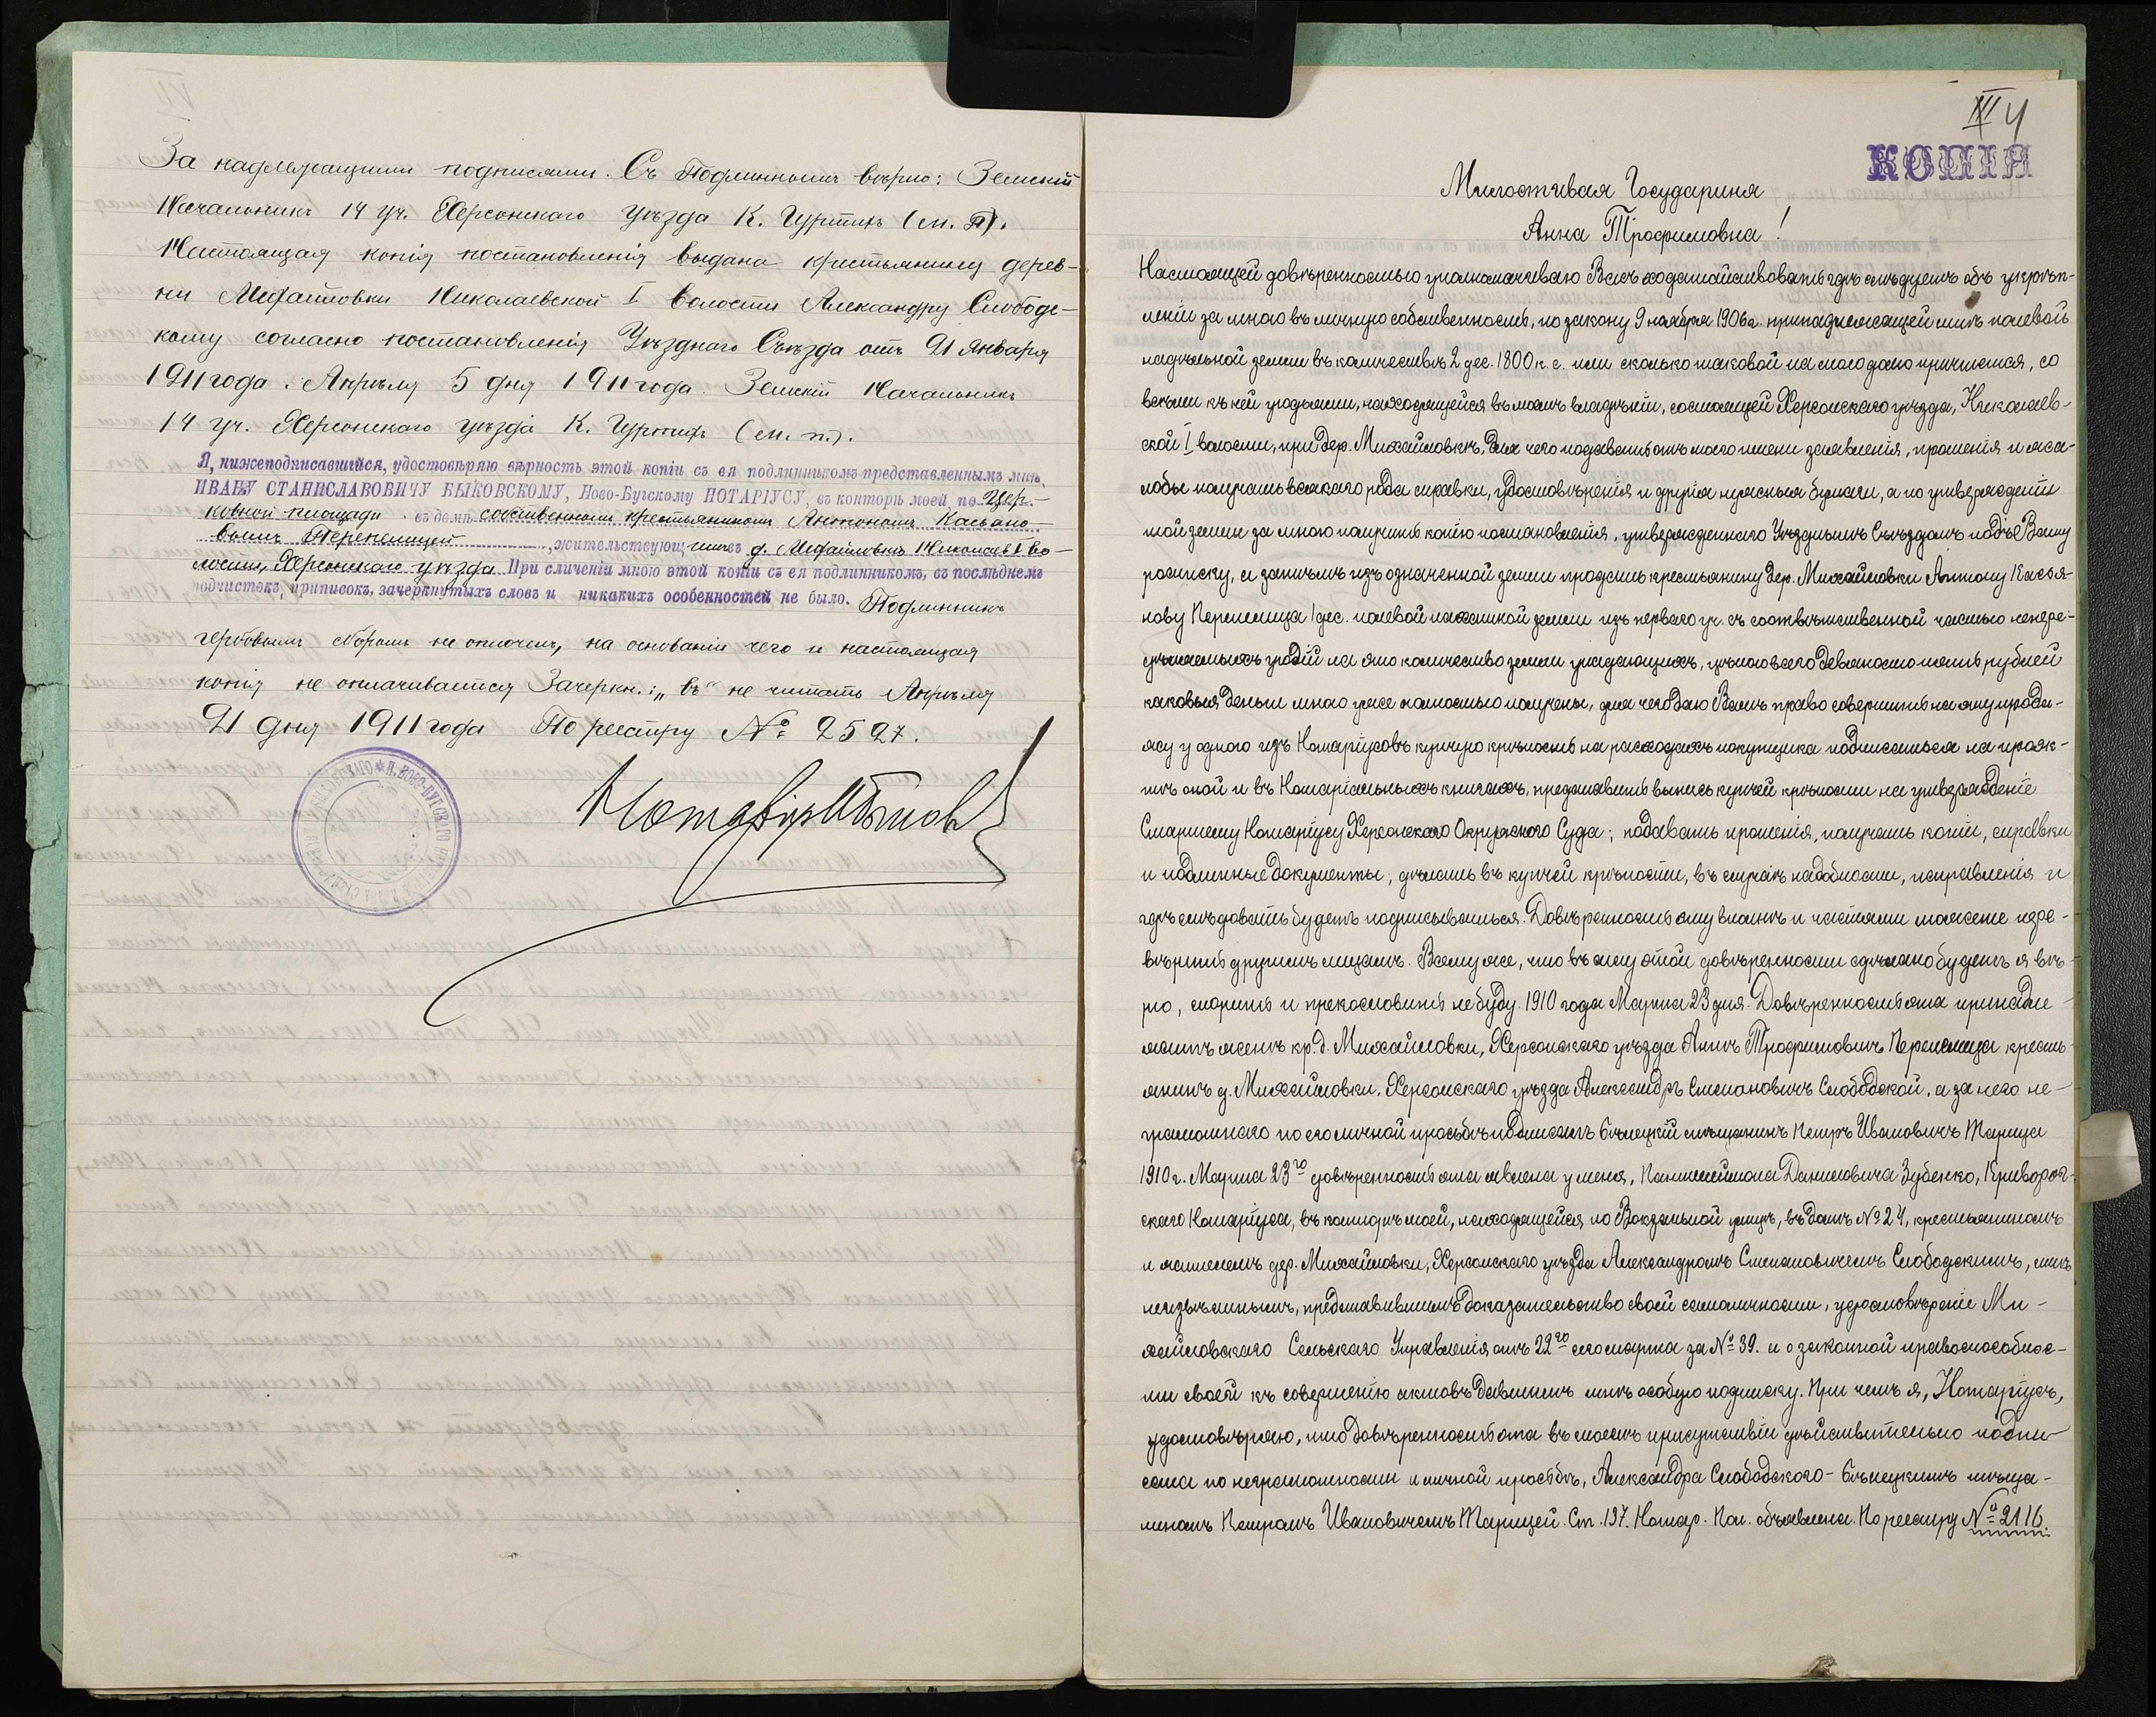 За надлежащими подписями. Съ подлиннымъ вѣрно: Земскій
Начальникъ 14 уч. Херсонскаго уѣзда К. (м. п).
Настоящая копія постановленія выдана крестьянину дерев-
ни Михайловки Николаевской I волости Александру Слободс-
кому согласно постановленія Уѣзднаго Съѣзда отъ 21 Января
1911 года. Апрѣля 5 дня 1911 года. Земскій Начальникъ
14 уч. Херсонскаго уѣзда К. (м. п.).
Я, нижеподписавшійся, удостовѣряю вѣрность этой копіи съ ея подлинникомъ представленнымъ мнѣ,
ИВАНУ СТАНИСЛАВОВИЧУ БЫКОВСКОМУ, Ново-Бугскому НОТАРІУСУ, въ конторѣ моей, по Цер-
ковной площади въ домѣ собственномъ крестьяниномъ Антономъ Касьяно-
вымъ Перепелицей, жительствующимъ въ д. Михайловкѣ Николаев. I во-
лости, Херсонскаго уѣзда При сличеніи мною этой копіи съ ея подлинникомъ, въ послѣднемъ
подчистокъ, приписокъ, зачеркнутыхъ словъ и никакихъ особенностей не было. Подлинникъ
гербовымъ сборомъ не оплоченъ, на основаніи чего и настоящая
копія не оплачивается Зачеркн.: „въ“ не читать Апрѣля
21 дня 1911 года По реестру № 2527.
Нотаріусъ
IV
КОПІЯ
Милостивая Государиня
Анна Трофимовна!
Настоящей довѣренностью уполномачиваю Васъ ходатайствовать гдѣ слѣдуетъ объ укрѣп-
леніи за мною въ личную собственность, по закону 9 ноября 1906 г. принадлежащей мнѣ полевой
надѣльной земли въ количествѣ 2 дес. 1800 к. с. или сколько таковой на мою долю причтется, со
всѣми къ ней угодьями, находящейся въ моемъ владѣніи, состоящей Херсонскаго уѣзда, Николаев-
ской I волости, при дер. Михайловкѣ, для чего подавать отъ моего имени заявленія, прошенія и жа-
лобы получать всякаго рода справки, удостовѣренія и другія нужныя бумаги, а по утвержденіи
той земли за мною получить копію постановленія, утвержденнаго Уѣзднымъ Съѣздомъ подъ Вашу
росписку, а затѣмъ изъ означенной земли продать крестьянину дер. Михайловки Антону Касья-
нову Перепелица 1 дес. полевой пахатной земли изъ перваго уч. съ соотвѣтственной частью нераз-
дѣльныхъ угодій на это количество земли упадающихъ, цѣною всего девяносто пять рублей
каковыя деньги мною уже полностью получены, для чего даю Вамъ право совершить на эту прода-
жу у одного изъ Нотаріусовъ купчую крѣпость на расходахъ покупщика подписаться на проэк-
тѣ оной и въ Нотаріальныхъ книгахъ, представить выпись купчей крѣпости на утвержденіе
Старшему Нотаріусу Херсонскаго Окружнаго Суда; подавать прошенія, получать копіи, справки
и подлинные документы, дѣлать въ купчей крѣпости, въ случаѣ надобности, исправленія и
гдѣ слѣдовать будетъ подписываться. Довѣренность эту вполнѣ и частями можете пере-
вѣрить другимъ лицамъ. Всему же, что въ силу этой довѣренности сдѣлано будетъ я вѣ-
рю, спорить и прекословить не буду. 1910 года Марта 23 дня. Довѣренность эта принадле-
житъ женѣ кр. д. Михайловки, Херсонскаго уѣзда Аннѣ Трофимовнѣ Перепелица крестья-
нинъ д. Михайловки, Херсонскаго уѣзда Александръ Степановичъ Слободской, а за него не-
грамотнаго по его личной просьбѣ подписалъ Бѣлецкій мѣщанинъ Петръ Ивановичъ Тарица
1910 г. Марта 23го довѣренность эта явлена у меня, Пантелеймона Даниловича Зубенко, Криворож-
скаго Нотаріуса, въ конторѣ моей, находящейся по Вокзальной улицѣ, въ домѣ № 24, крестьяниномъ
и жителемъ дер. Михайловки, Херсонскаго уѣзда Александромъ Степановичемъ Слободскимъ, мнѣ
неизвѣстнымъ, представившимъ въ доказательство своей самоличности, удостовѣреніе Ми-
хайловскаго Сельскаго Управленія отъ 22го сего марта за № 39. и о законной правоспособнос-
ти своей къ совершенію актовъ давшимъ мнѣ особую подписку. При чемъ я, Нотаріусъ,
удостовѣряю, что довѣренность эта въ моемъ присутствіи дѣйствительно подпи-
сана по неграмотности и личной просьбѣ, Александра Слободского - Бѣлецкимъ мѣща-
ниномъ Петромъ Ивановичемъ Тарицей. Ст. 137. Нотар. Пол. объявлена. По реестру № 2116.